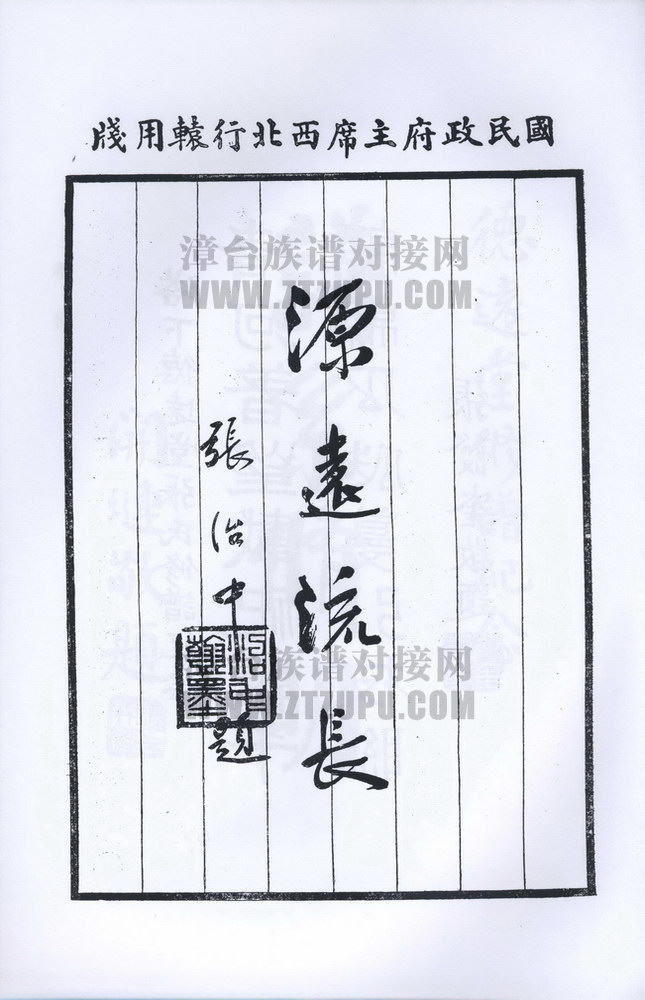 國民政府主席西北行轅用牋
源遠流長
張治中題
治中翰墨
漳台族谱对接网
WWW.ZTZUPU.COM
漳台族谱对接网
WWW.ZTZUPU.COM